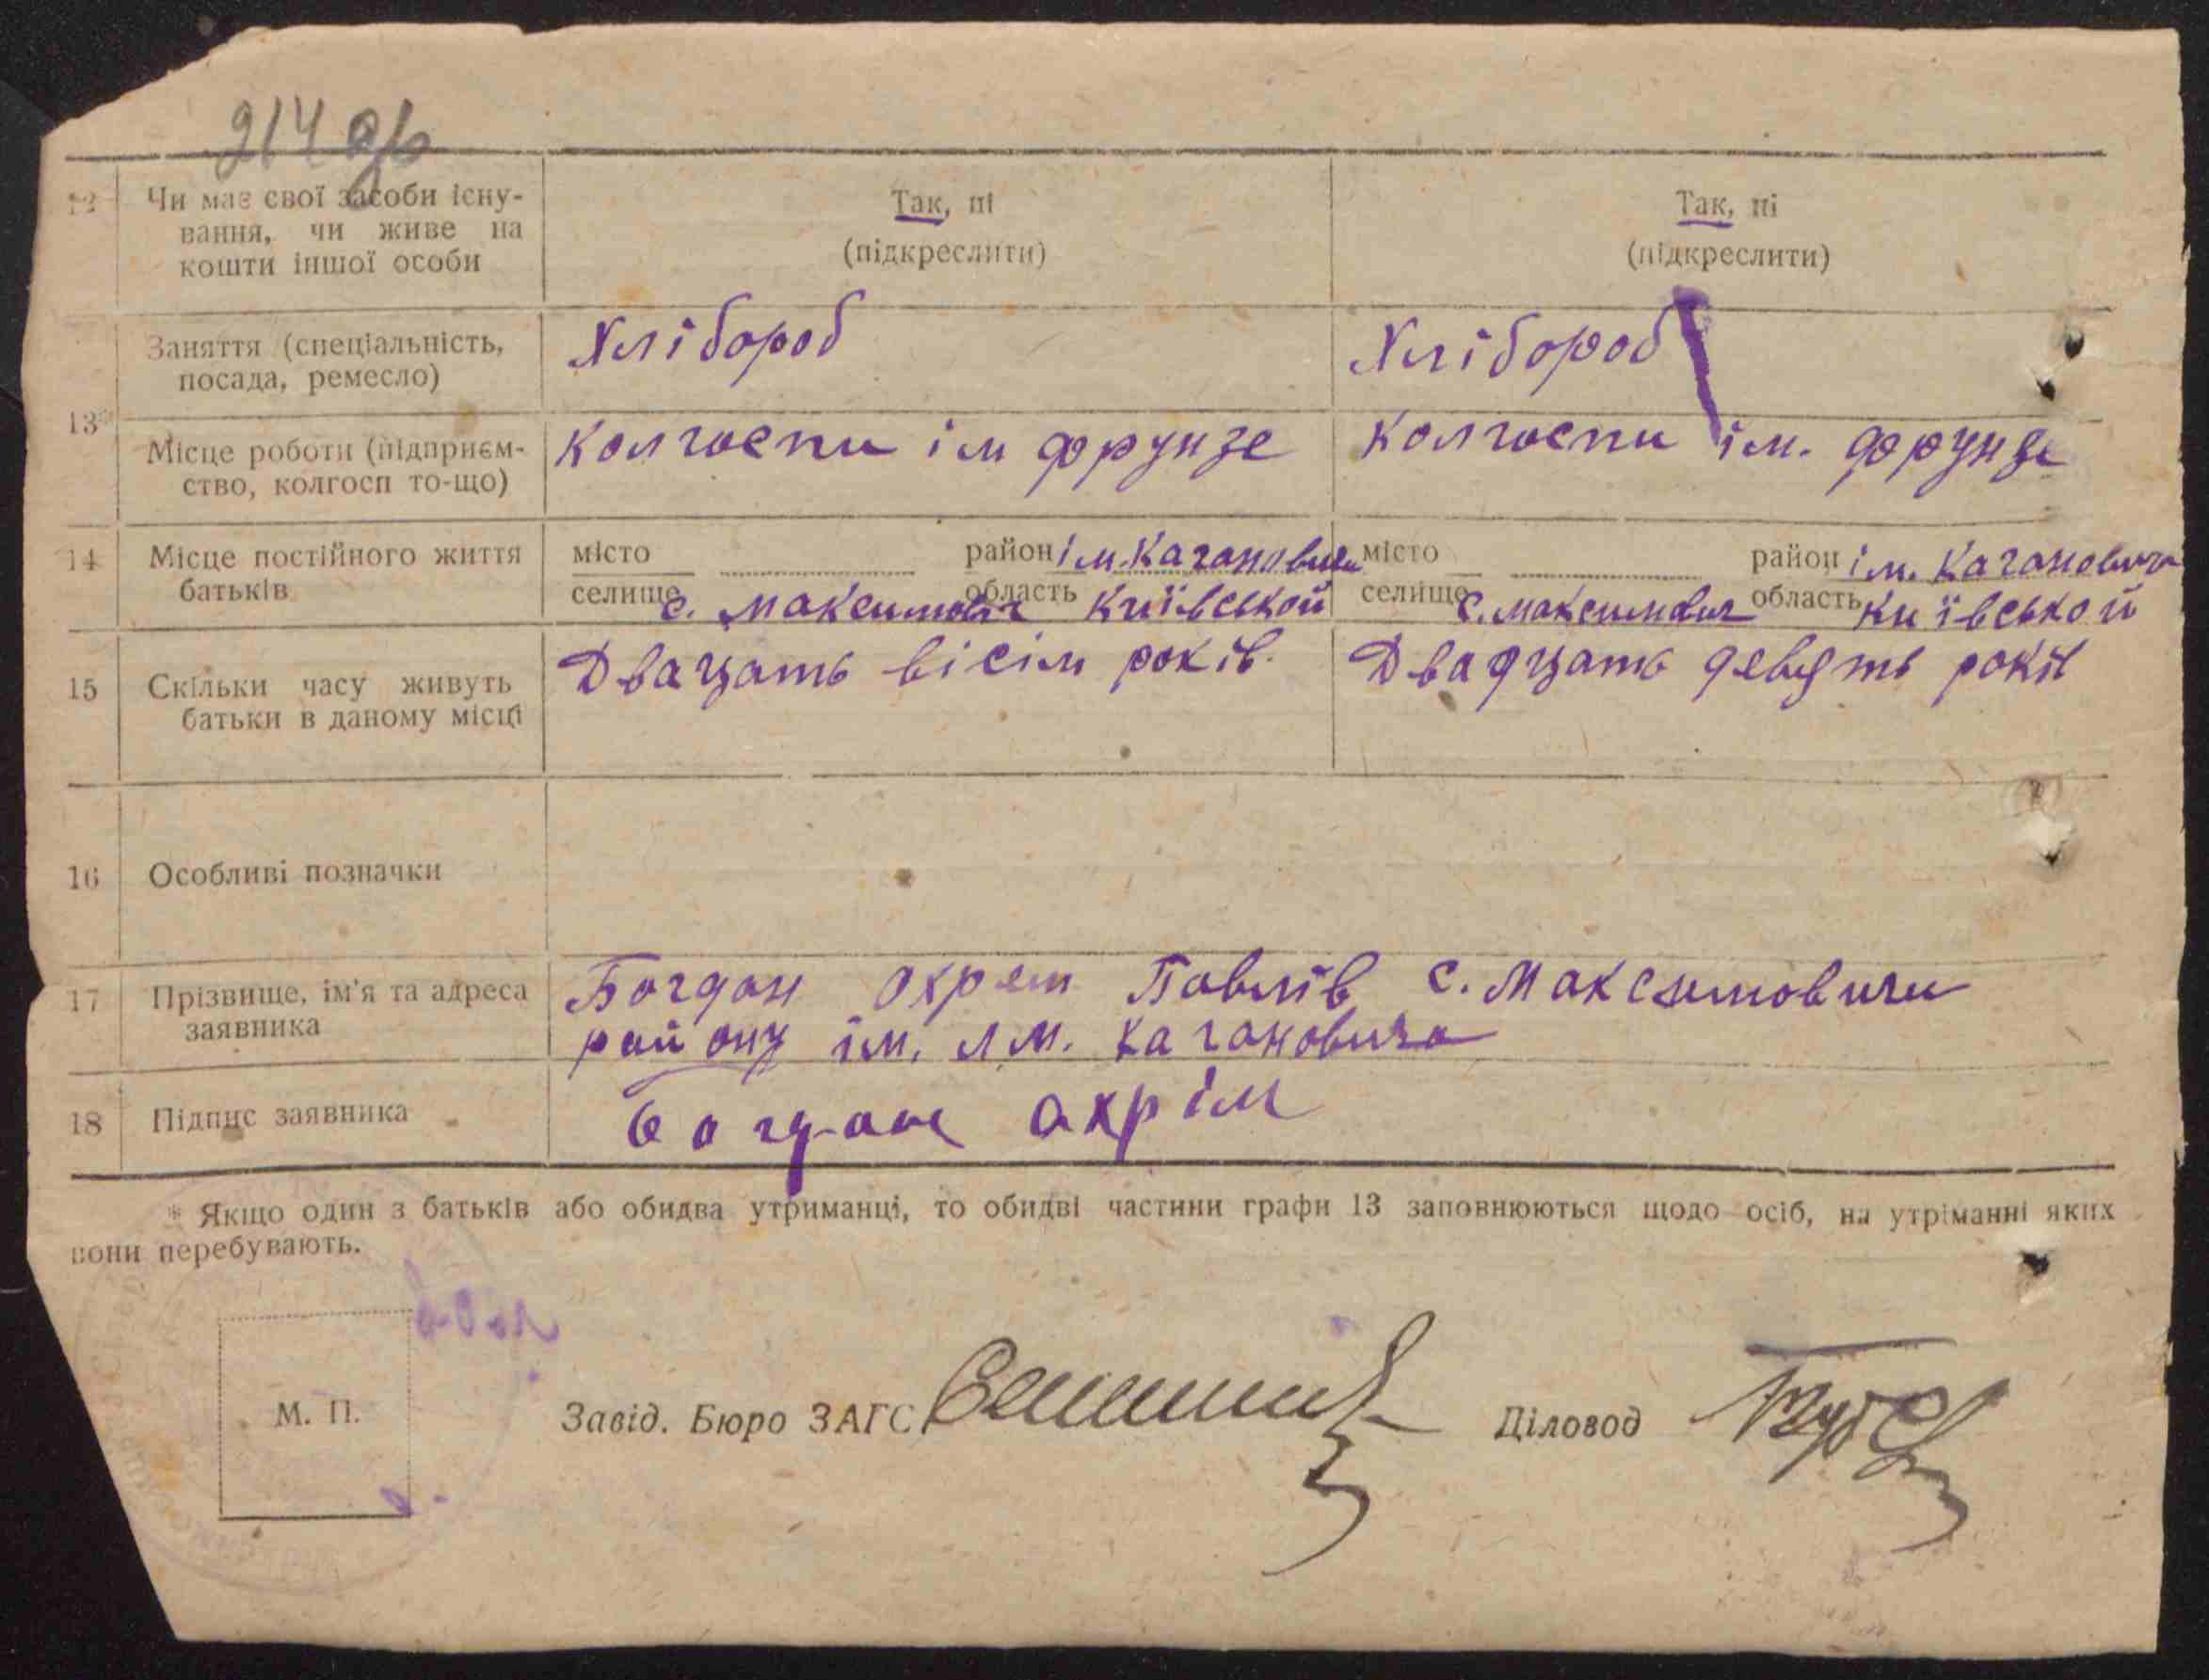 214
12 Чи має свої засоби існу-
вання, чи живе на
кошти іншої особи
Так, ні
(підкреслити)
Так, ні
(підкреслити)
13*
Заняття (спеціальність,
посада, ремесло)
Хлібороб
Хлібороб
Місце роботи (підприєм-
ство, колгосп то-що)
Колгоспи ім Фрунзе
Колгоспи ім. Фрунзе
14 Місце постійного життя
батьків
місто район ім. Кагановича
селище с. Максимович область Київськой
місто район ім. Кагановича
селище с. Максимович область Київськой
15 Скільки часу живуть
батьки в даному місці
Двацять вісім років.
Двадцять девять років
16 Особливі позначки
17 Прізвище, ім'я та адреса
заявника
Богдан Охрем Павлів с. Максимовичи
району ім. Л М. Кагановича
18 Підпис заявника
богдан охрім
* Якщо один з батьків або обидва утриманці, то обидві частини графи 13 заповнюються щодо осіб, на утріманні яких
вони перебувають.
М. П.
Завід. Бюро ЗАГС
Діловод